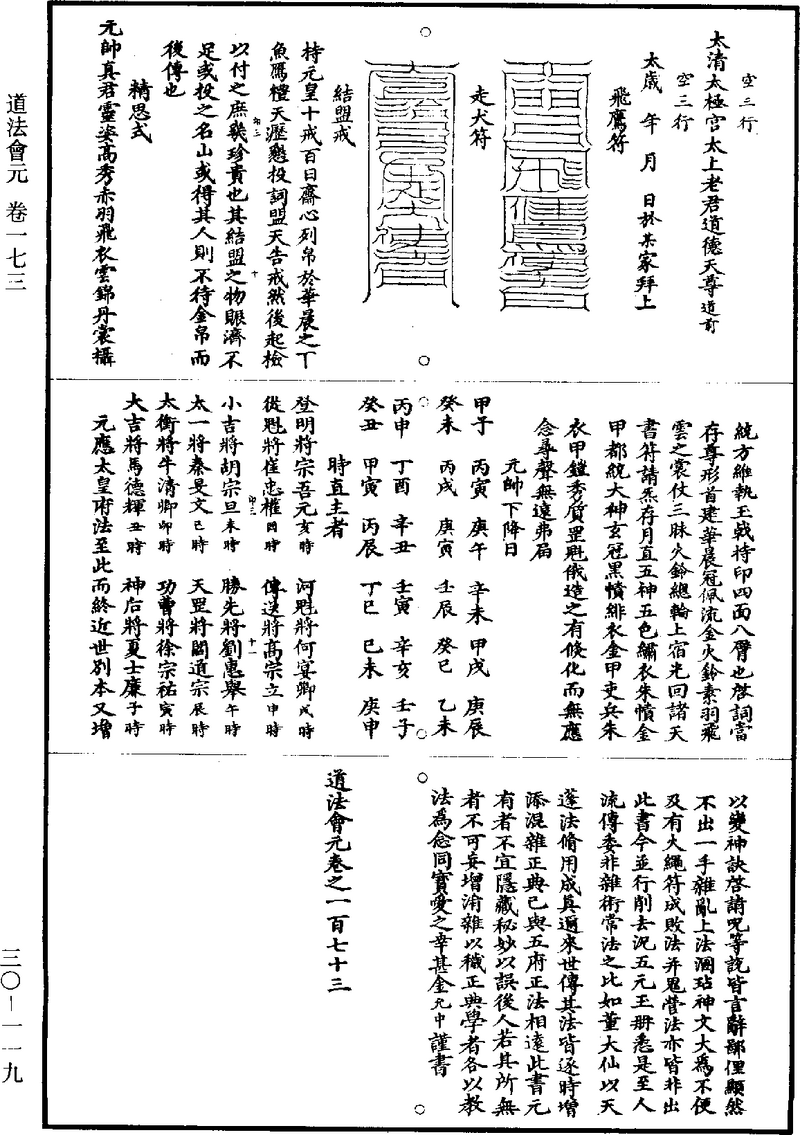 道法會元 卷一七三
三〇—一一九
空三行
太清太極宮太上老君道德天尊道前
空三行
太歲 年 月 日於某家拜上
飛鷹符
走犬符
結盟戒
持元皇十戒百日齋心列帛於華晨之丁
魚鴈禮天瀝懇投詞盟天告戒然後起檢
以付之庶幾珍貴也其結盟之物賑濟不
足或投之名山或得其人則不待金帛而
後傳也
精思式
元帥真君靈姿高秀赤羽飛衣雲錦丹裳攝
統方維執王戟持印四面八臂也啓詞當
存尊形首建華晨冠佩流金火鈴素羽飛
雲之裳仗三昧火鈴總輪上宿光回諸天
書符請炁存月直五神五色繡衣朱幘金
甲都統大神玄冠黑幘緋衣金甲吏兵朱
衣甲鎧秀質罡魁俄造之有倏化而無應
念尋聲無遠弗届
元帥下降日
甲子 丙寅 庚午 辛未 甲戌 庚辰
癸未 丙戌 庚寅 壬辰 癸巳 乙未
丙申 丁酉 辛丑 壬寅 辛亥 壬子
癸丑 甲寅 丙辰 丁巳 己未 庚申
時直主者
登明將宗吾元亥時 河魁將何宴卿戌時
從魁將崔忠權酉時 傳送將高宗立申時
小吉將胡宗旦未時 勝先將劉惠舉午時
太一將秦旻文巳時 天罡將閻道宗辰時
太衝將牛清卿卯時 功曹將徐宗祐寅時
大吉將馬德輝丑時 神后將夏士廉子時
元應太皇府法至此而終近世別本又增
以變神訣啓請呪等說皆言辭鄙俚顯然
不出一手雜亂上法溷玷神文大為不便
及有火繩符成敗法并鬼營法亦皆非出
此書今並行削去況五元王册悉是至人
流傳委非雜術常法之比如董大仙以天
蓬法脩用成真邇來世傳其法皆逐時增
添混雜正典已與五府正法相遠此書元
有者不宜隱藏秘妙以誤後人若其所無
者不可妄增淆雜以穢正典學者各以教
法為念同寶愛之幸甚金允中謹書
道法會元卷之一百七十三